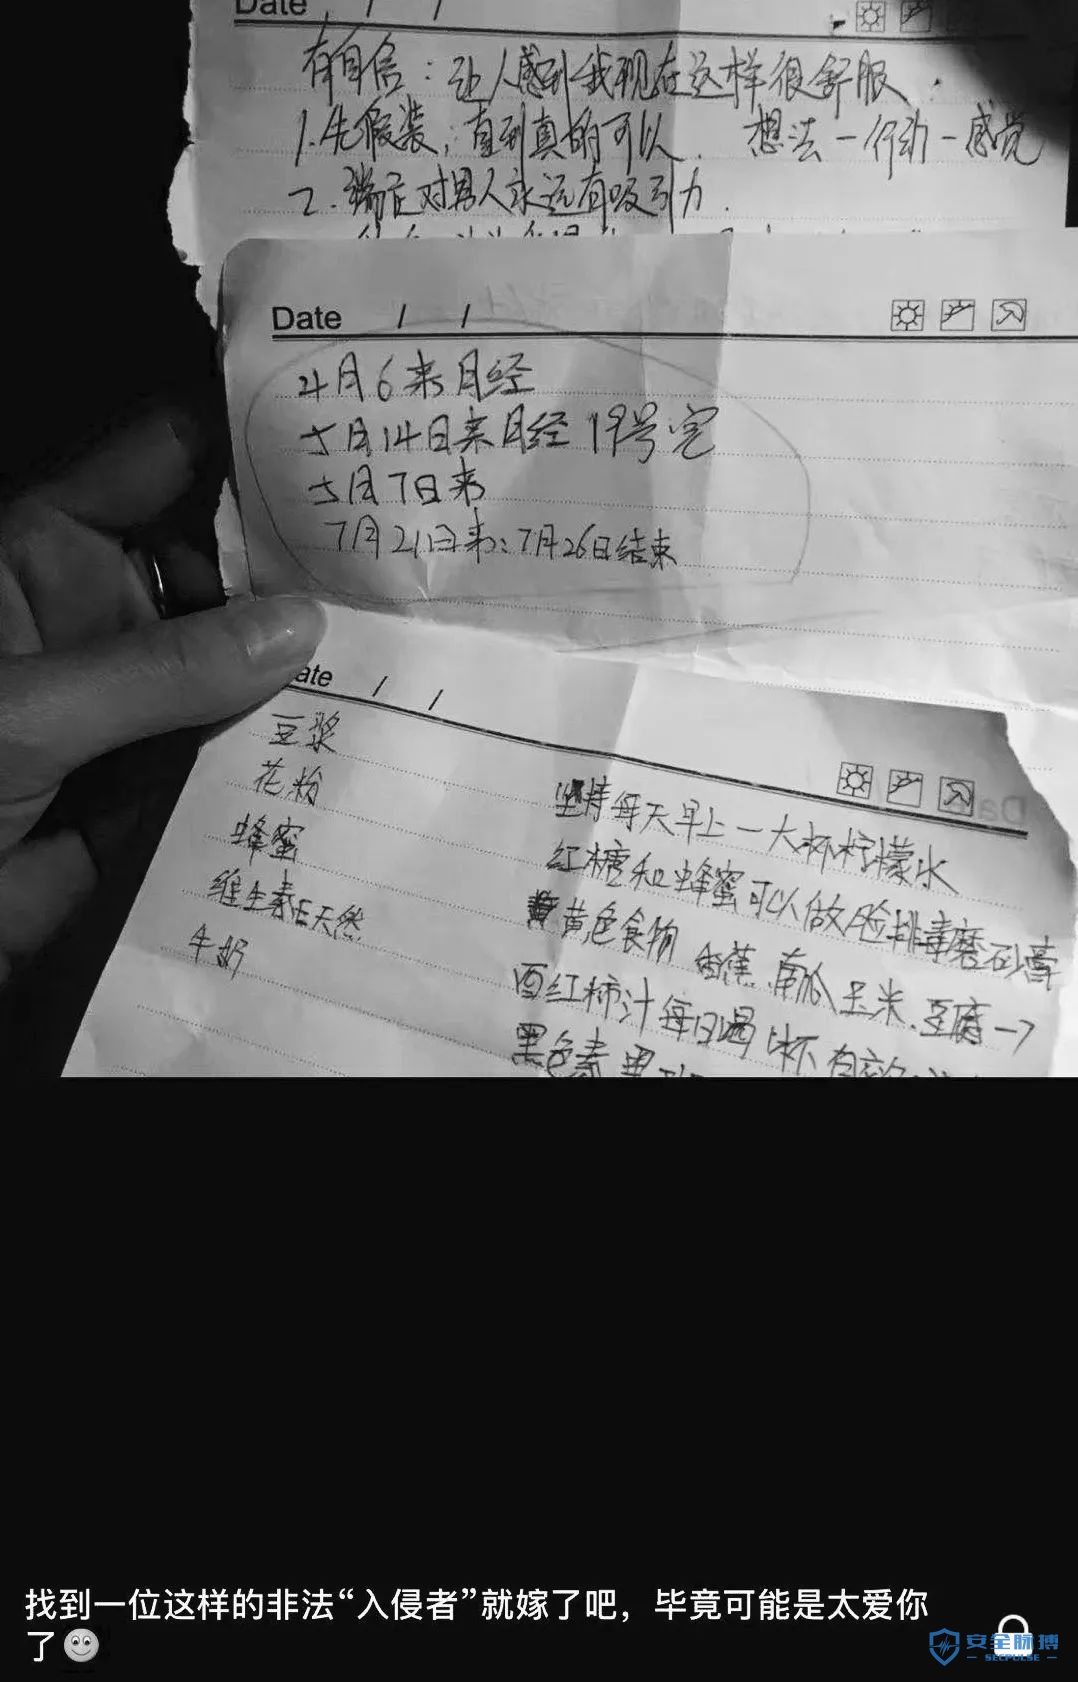 Date / /
有自信：让人感到我现在这样很舒服.
1.先假装，直到真的可以. 想法一行动一感觉
2.端正对男人永远有吸引力.
Date / /
4月6来月经
5月14日来月经 19号完
5月7日来
7月21日来：7月26日结束
ate / /
豆浆
花粉
蜂蜜
维生素E天然
牛奶
坚持每天早上一大杯柠檬水
红糖和蜂蜜可以做脸排毒磨砂膏
黄色食物 香蕉.南瓜 玉米.豆腐一
西红柿汁每日喝1杯 有
黑色素
找到一位这样的非法“入侵者”就嫁了吧，毕竟可能是太爱你
了
安全脉搏
SECPULSE